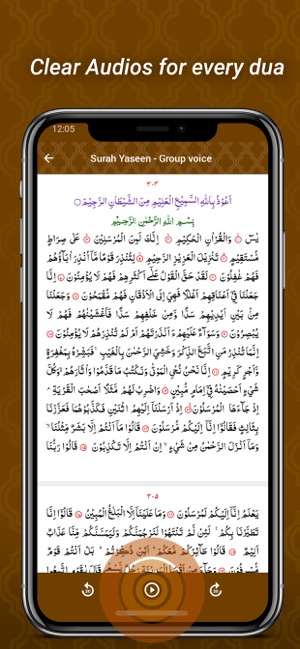 Clear Audios for every dua
12:05
Surah Yaseen - Group voice
٣٠٣
اَعُوْذُ بِاللّٰهِ السَّمِيْعِ الْعَلِيْمِ مِنَ الشَّيْطَانِ الرَّجِيْمِ ○
بِسْمِ اللّٰهِ الرَّحْمٰنِ الرَّحِيْمِ
يٰسٓ ۞ وَالْقُرْاٰنِ الْحَكِيْمِ ۞ اِنَّكَ لَمِنَ الْمُرْسَلِيْنَ ۞ عَلٰى صِرَاطٍ
مُّسْتَقِيْمٍ ۞ تَنْزِيْلَ الْعَزِيْزِ الرَّحِيْمِ ۞ لِتُنْذِرَ قَوْمًا مَّاۤ اُنْذِرَ اٰبَآؤُهُمْ
فَهُمْ غٰفِلُوْنَ ۞ لَقَدْ حَقَّ الْقَوْلُ عَلٰۤى اَكْثَرِهِمْ فَهُمْ لَا يُؤْمِنُوْنَ ۞ اِنَّا
جَعَلْنَا فِيْۤ اَعْنَاقِهِمْ اَغْلٰلًا فَهِيَ اِلَى الْاَذْقَانِ فَهُمْ مُّقْمَحُوْنَ ۞ وَجَعَلْنَا
مِنْۢ بَيْنِ اَيْدِيْهِمْ سَدًّا وَّمِنْ خَلْفِهِمْ سَدًّا فَاَغْشَيْنٰهُمْ فَهُمْ لَا
يُبْصِرُوْنَ ۞ وَسَوَآءٌ عَلَيْهِمْ ءَاَنْذَرْتَهُمْ اَمْ لَمْ تُنْذِرْهُمْ لَا يُؤْمِنُوْنَ ۞
اِنَّمَا تُنْذِرُ مَنِ اتَّبَعَ الذِّكْرَ وَخَشِيَ الرَّحْمٰنَ بِالْغَيْبِ ۚ فَبَشِّرْهُ بِمَغْفِرَةٍ
وَّاَجْرٍ كَرِيْمٍ ۞ اِنَّا نَحْنُ نُحْيِ الْمَوْتٰى وَنَكْتُبُ مَا قَدَّمُوْا وَاٰثَارَهُمْ ۚ وَكُلَّ
شَيْءٍ اَحْصَيْنٰهُ فِيْۤ اِمَامٍ مُّبِيْنٍ ۞ وَاضْرِبْ لَهُمْ مَّثَلًا اَصْحٰبَ الْقَرْيَةِ ۘ
اِذْ جَآءَهَا الْمُرْسَلُوْنَ ۞ اِذْ اَرْسَلْنَاۤ اِلَيْهِمُ اثْنَيْنِ فَكَذَّبُوْهُمَا فَعَزَّزْنَا
بِثَالِثٍ فَقَالُوْۤا اِنَّاۤ اِلَيْكُمْ مُّرْسَلُوْنَ ۞ قَالُوْا مَاۤ اَنْتُمْ اِلَّا بَشَرٌ مِّثْلُنَا ۙ
وَمَاۤ اَنْزَلَ الرَّحْمٰنُ مِنْ شَيْءٍ ۙ اِنْ اَنْتُمْ اِلَّا تَكْذِبُوْنَ ۞ قَالُوْا رَبُّنَا
٣٠٥
يَعْلَمُ اِنَّاۤ اِلَيْكُمْ لَمُرْسَلُوْنَ ۞ وَمَا عَلَيْنَاۤ اِلَّا الْبَلٰغُ الْمُبِيْنُ ۞ قَالُوْۤا اِنَّا
تَطَيَّرْنَا بِكُمْ ۚ لَئِنْ لَّمْ تَنْتَهُوْا لَنَرْجُمَنَّكُمْ وَلَيَمَسَّنَّكُمْ مِّنَّا عَذَابٌ
اَلِيْمٌ ۞ قَالُوْا طَآئِرُكُمْ مَّعَكُمْ ۚ اَئِنْ ذُكِّرْتُمْ ۚ بَلْ اَنْتُمْ قَوْمٌ